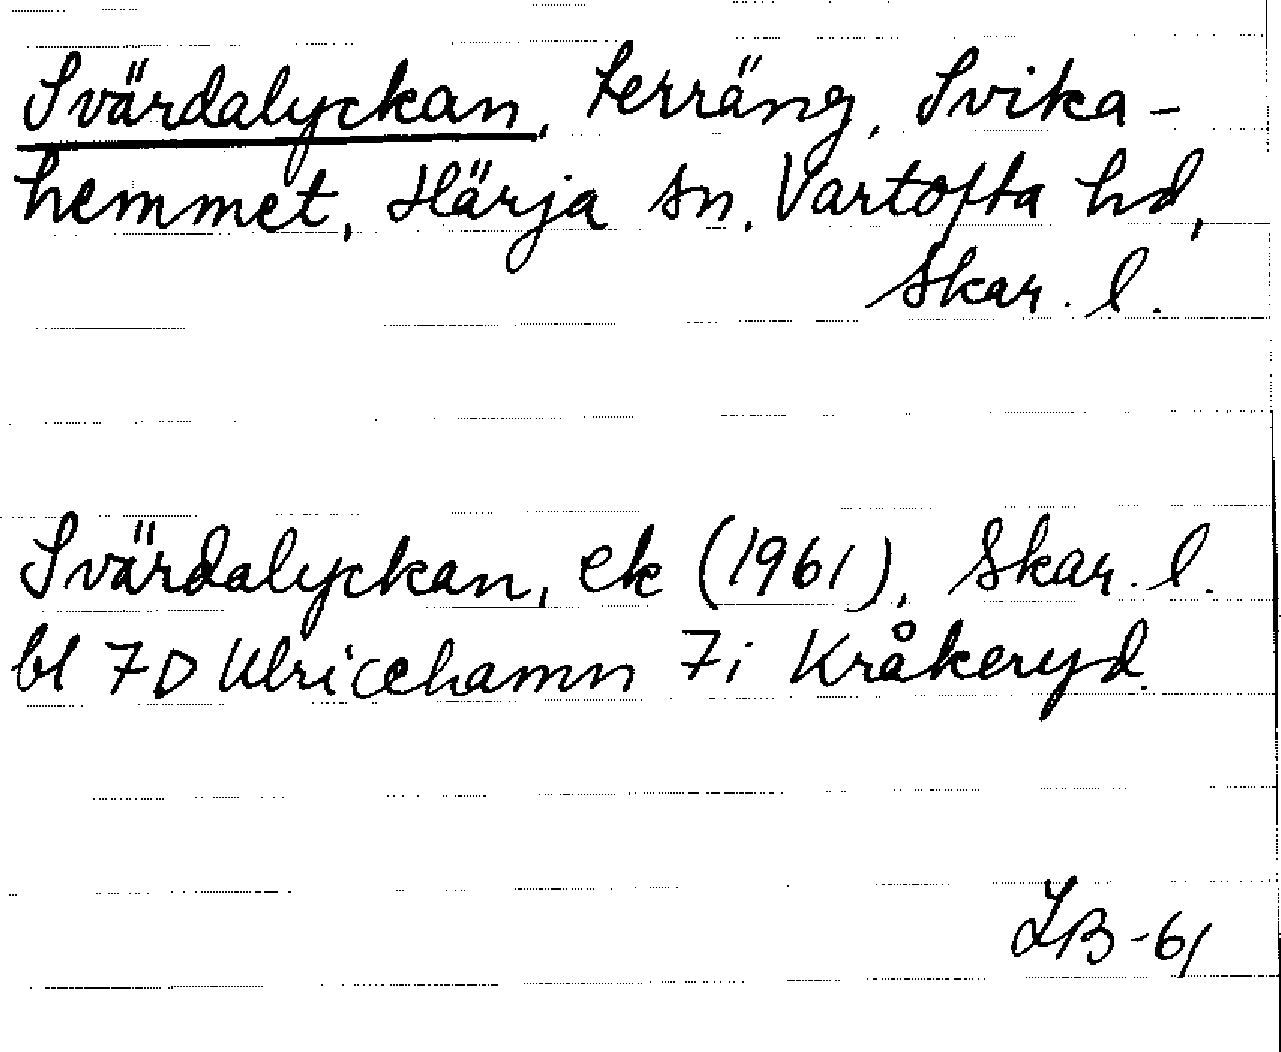 Svärdalyckan, terräng, Svika-
hemmet, Härja sn, Vartofta hd,
Skar. l.
Svärdalyckan, ek (1961), Skar. l.
bl 7D Ulricehamn 7i Kråkeryd.
LB-61